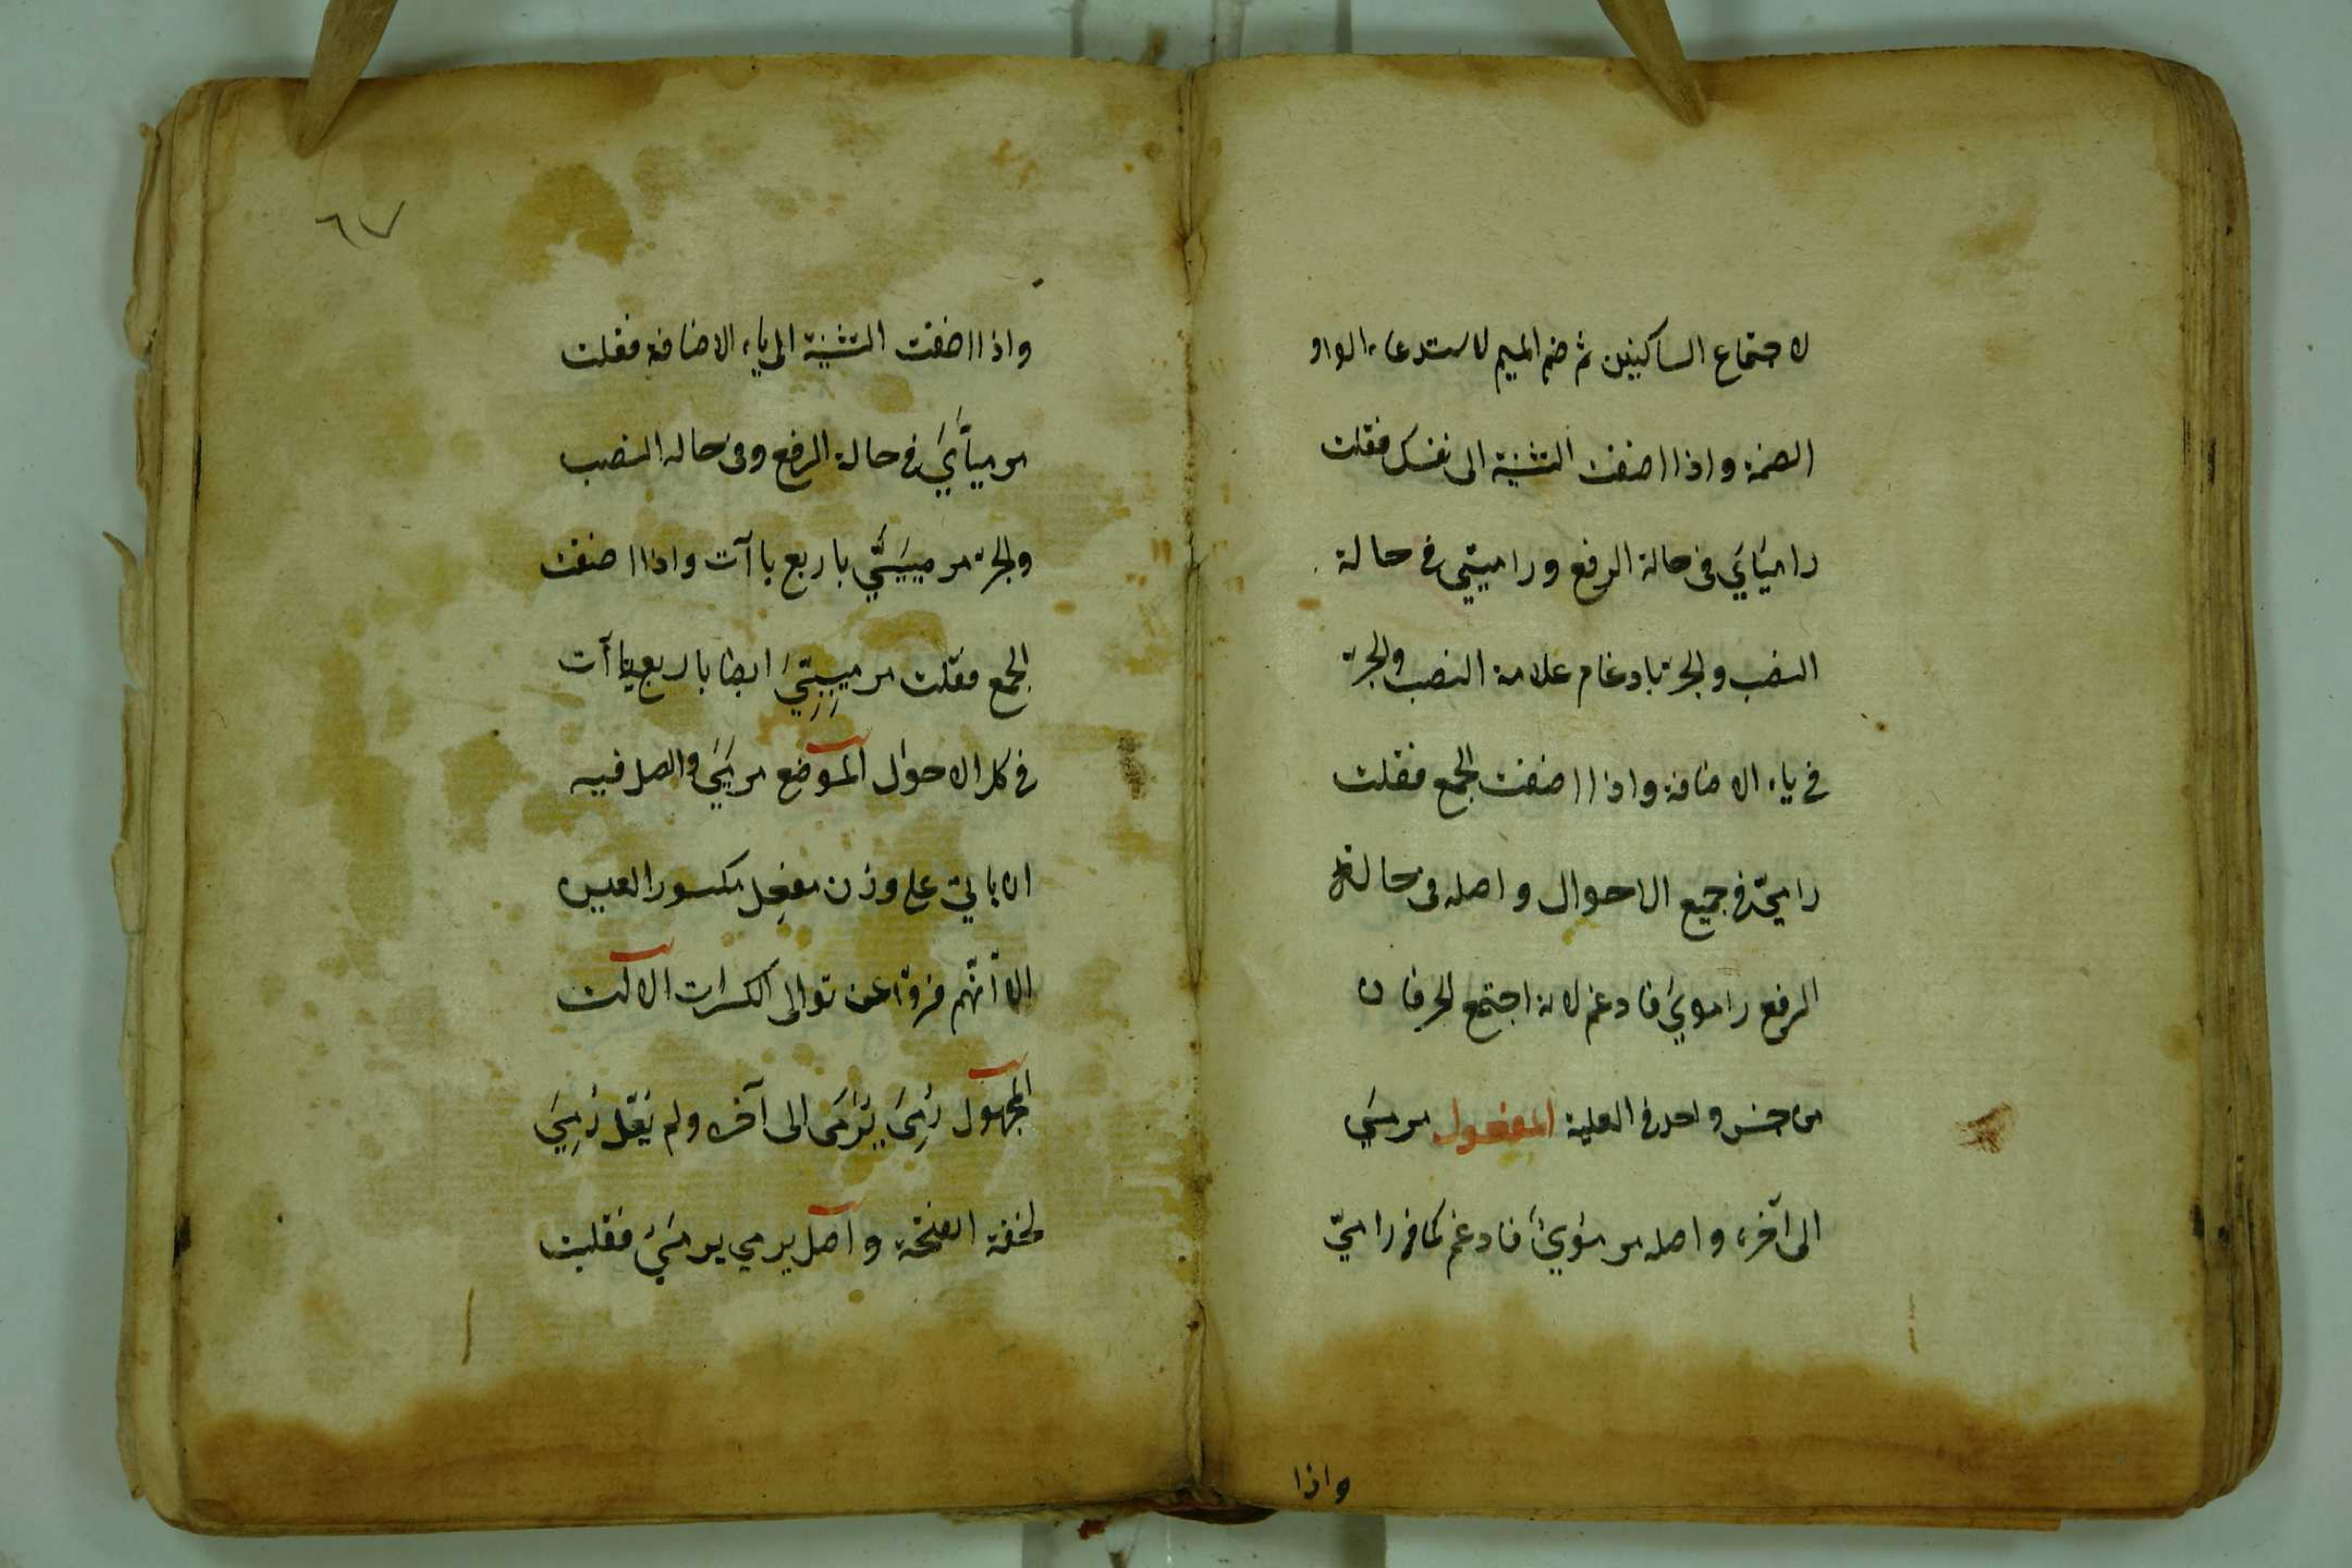 لاجتماع الساكنين ثم ضم الميم لاستدعاء الواو
الضمة واذا اضفت التثنية الى نفسك فقلت
راميَايَ فى حالة الرفع وراميَيّ فى حالة
النصب والجر بادغام علامة النصب والجر
فى ياء الاضافة واذا اضفت الجمع فقلت
راميّ فى جميع الاحوال واصله فى حالة
الرفع راموىَ فادغم لانه اجتمع الحرفان
من جنس واحد فى العلية المفعول مرمىّ
الى آخره واصله مرموىٌ فادغم كما فى راميّ
واذا
٦٧
واذا اضفت التثنية الى ياء الاضافة فقلت
مرميّايَ فى حالة الرفع وفى حالة النصب
والجر مرمييَّيَّ باربع ياآت واذا اضفت
الجمع فقلت مرميِيِّيَ ايضا باربع ياآت
فى كل الاحوال الموضع مرمَى والاصل فيه
ان ياتى على وزن مفعِل مكسور العين
الا انّهم فرّوا عن توالى الكسرات الآلت
المجهول رُمِىَ يُرْمَى الى آخره ولم يُعَلّ رُمِىَ
لخفة الفتحة واصل يرمى يرمَىُ فقلبت